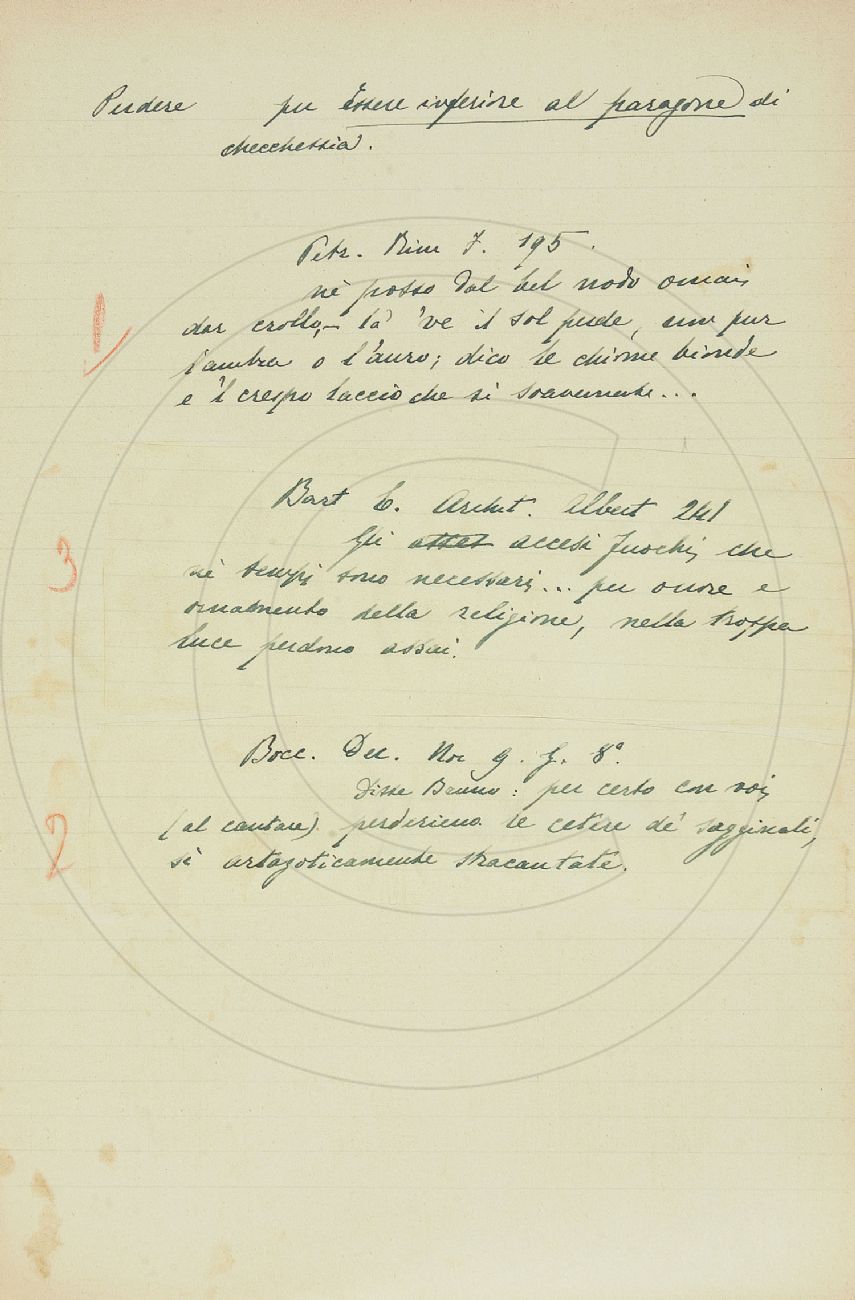 Perdere per Essere inferiore al paragone di
checchessia.
Petr. Rim f. 195.
nè posso dal bel nodo omai
dar crollo,- là 've il sol perde, non pur
l'ambra o l'auro; dico le chiome bionde
e 'l crespo laccio che sì soavemente...
1
Bart C. Archit. Albert 241
Gli asset accesi fuochi, che
ne' tempi sono necessari... per onore e
ornamento della religione, nella troppa
luce perdono assai.
3
Bocc. Dec. Nov 9. G. 8ª.
Disse Bruno: per certo con voi
(al cantare) perderieno le cetere de' sagginali,
sì artagoticamente stracantate.
2